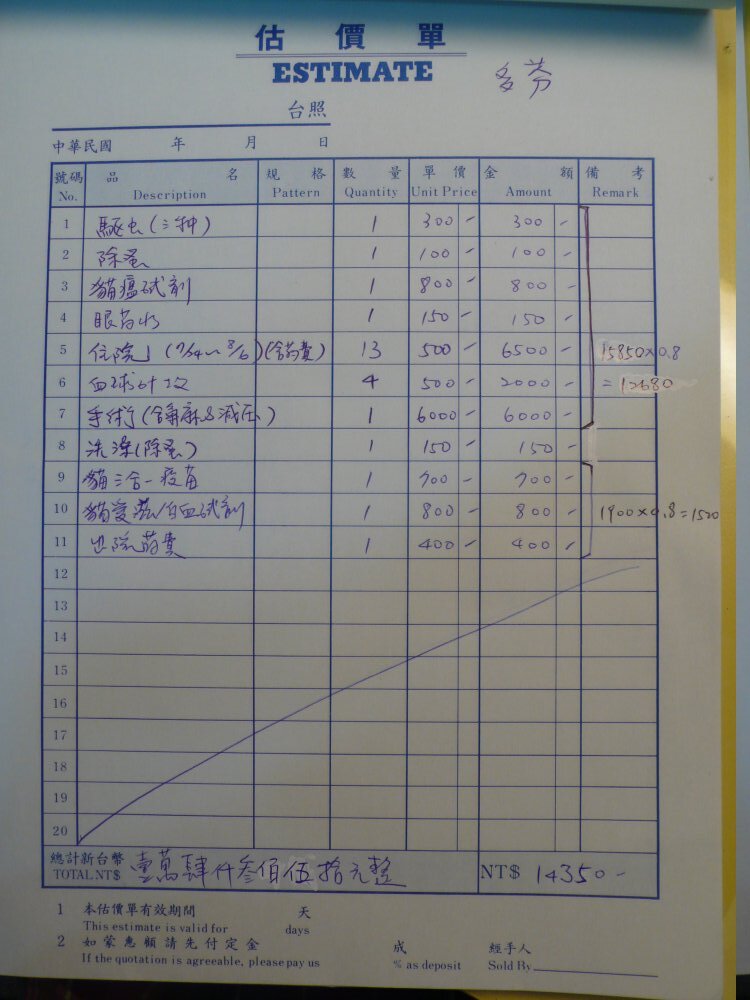 估價單
ESTIMATE
多芬
台照
中華民國 年 月 日
號碼 品 名 規 格 數 量 單 價 金 額 備 考
No. Description Pattern Quantity Unit Price Amount Remark
1 驅虫(三种) 1 300 - 300 -
2 除蚤 1 100 - 100 -
3 貓瘟試劑 1 800 - 800 -
4 眼药水 1 150 - 150 -
5 住院 (7/24~8/6)(含药費) 13 500 - 6500 - 15850×0.8
6 血球计数 4 500 - 2000 - = 12680
7 手術(含麻&減压) 1 6000 - 6000 -
8 洗澡(除蚤) 1 150 - 150 -
9 貓三合一疫苗 1 700 - 700 -
10 貓愛滋/白血試劑 1 800 - 800 - 1900×0.8=1520
11 出院葯費 1 400 - 400 -
12
13
14
15
16
17
18
19
20
總計新台幣 壹萬肆仟叁佰伍拾元整
TOTAL NT$ NT$ 14350-
1 本估價單有效期間 天
This estimate is valid for days
2 如蒙惠顧請先付定金 成 經手人
If the quotation is agreeable, please pay us % as deposit Sold By